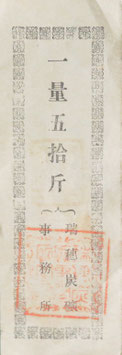 一量五拾斤
瑞穂炭礦
事務所